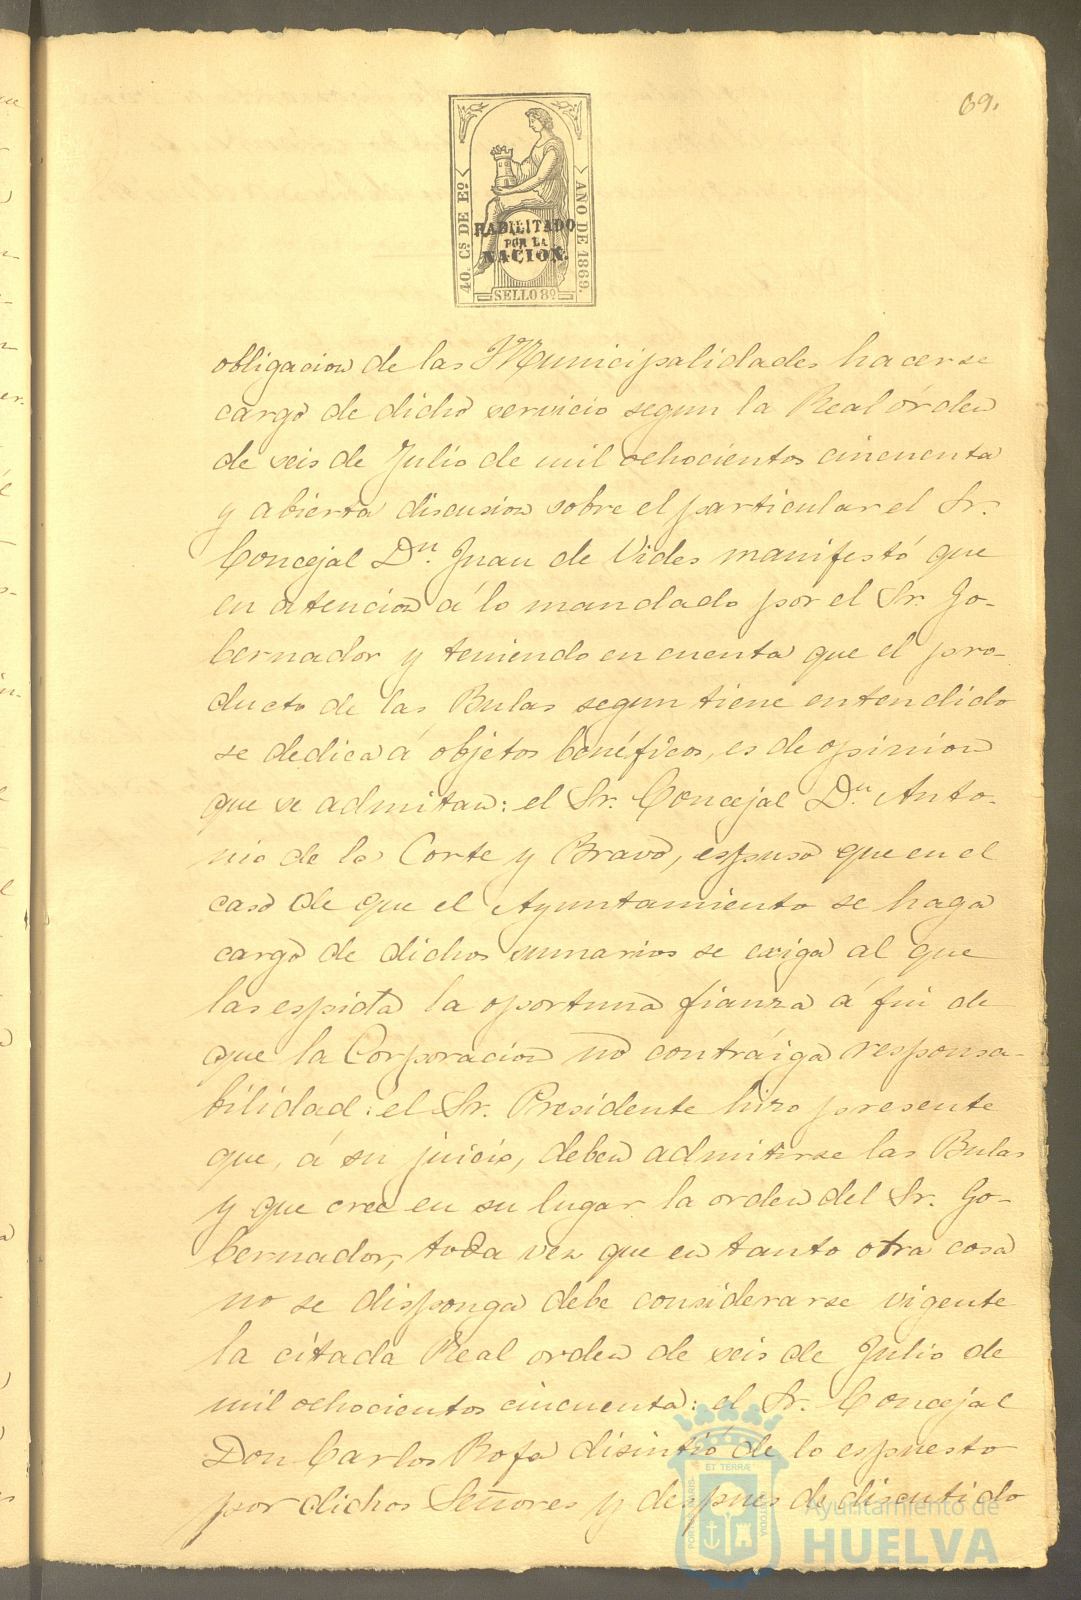 69.
40. Cs DE Eo
AÑO DE 1869.
HABILITADO
POR LA
NACION.
SELLO 8o
obligacion de las Municipalidades hacerse
cargo de dicho servicio segun la Real órden
de seis de Julio de mil ochocientos cincuenta
y abierta discusion sobre el particular el Sr.
Concejal Dn. Juan de Vides manifestó que
en atencion á lo mandado por el Sr. Go-
bernador y teniendo en cuenta que el pro-
ducto de las Bulas segun tiene entendido
se dedica á objetos benéficos, es de opinion
que se admitan: el Sr. Concejal Dn. Anto-
nio de la Corte y Bravo, espuso que en el
caso de que el Ayuntamiento se haga
cargo de dichos sumarios se exiga al que
las espida la oportuna fianza á fin de
que la Corporacion no contráiga responsa-
bilidad: el Sr. Presidente hizo presente
que, á su juicio, deben admitirse las Bulas
y que cree en su lugar la orden del Sr. Go-
bernador, toda vez que en tanto otra cosa
no se disponga debe considerarse vigente
la citada Real orden de seis de Julio de
mil ochocientos cincuenta: el Sr. Concejal
Don Carlos Rofa disintió de lo espuesto
por dichos Señores y despues de discutido
PORTUS MARIS
ET TERRÆ
CUSTODIA
Ayuntamiento de
HUELVA